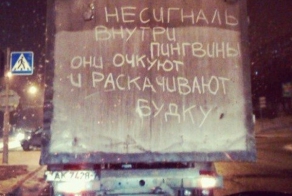 НЕСИГНАЛЬ
ВНУТРИ
ПИНГВИНЫ
ОНИ ОЧКУЮТ
И РАСКАЧИВАЮТ
БУДКУ